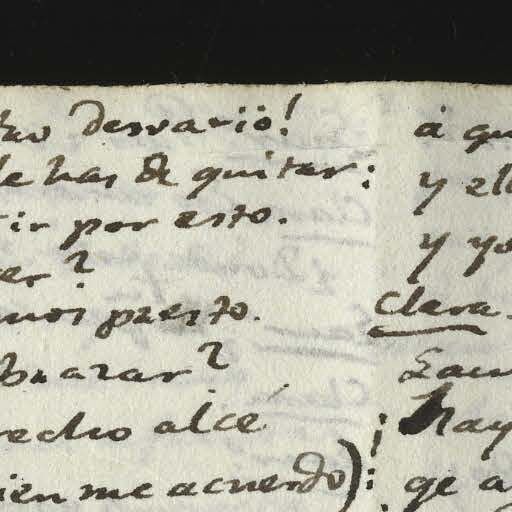 desvario!
le has de quitar:
ir por esto.
er?
mos presto.
azar?
echo alcé
ien me acuerdo):
á qu
y ell
y yo
Clara.
Lau
¡Hay
qe a